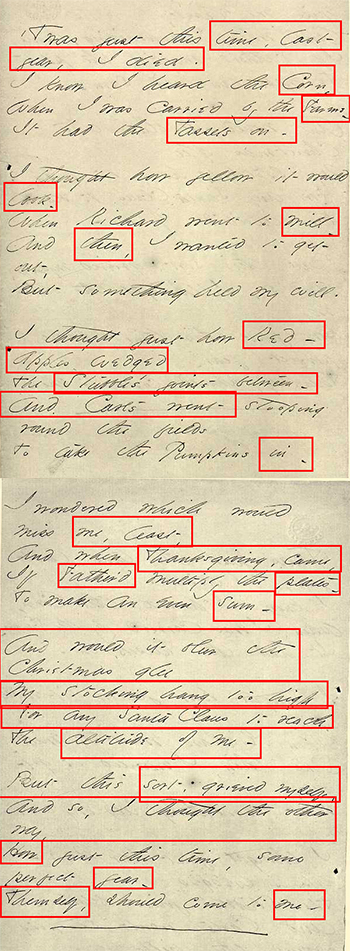 'Twas just this time, last
year, I died.
I know I heard the Corn,
When I was carried by the Farms -
It had the Tassels on -
I thought how yellow it would
look -
When Richard went to mill -
And then, I wanted to get
out,
But something held my will.
I thought just how Red -
Apples wedged
The Stubble's joints between -
And Carts went stooping
round the fields
To take the Pumpkins in -
I wondered which would
miss me, least -
And when Thanksgiving, came,
If Father'd multiply the plates -
To make an even Sum -
And would it blur the
Christmas glee
My Stocking hang too high
For any Santa Claus to reach
The altitude of me -
But this sort, grieved myself,
And so, I thought the other
way,
How just this time, some
perfect year -
Themself, should come to me -